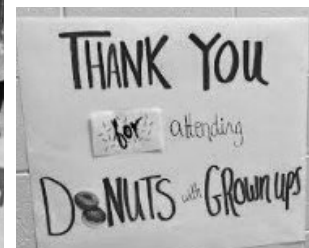 THANK YOU
for attending
DONUTS with GROWN UPS